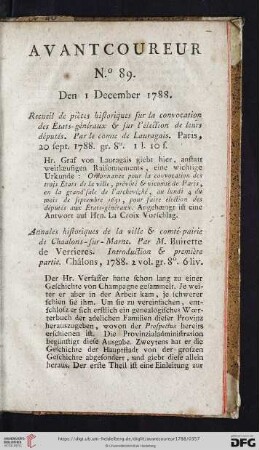 AVANTCOUREUR
N.° 89.
Den 1 December 1788.
Recueil de pièces historiques sur la convocation
des Etats-généraux & sur l'élection de leurs
députés. Par le comte de Lauragais. Paris,
20 sept. 1788. gr. 8°. 1 l. 10 s.
Hr. Graf von Lauragais giebt hier, anstatt
weitläufiger Raisonnements, eine wichtige
Urkunde: Ordonnance pour la convocation des
trois Etats de la ville, prévôté & vicomté de Paris,
en la grand'salle de l'archevêché, au lundi 4 du
mois de septembre 1651, pour faire élection des
députés aux Etats-généraux. Angehängt ist eine
Antwort auf Hrn. La Croix Vorschlag.
Annales historiques de la ville & comté-pairie
de Chaalons-sur-Marne. Par M. Buirette
de Verrieres. Introduction & première
partie. Châlons, 1788. 2 vol. gr. 8°. 6 liv.
Der Hr. Verfasser hatte schon lang zu einer
Geschichte von Champagne gesammelt. Je wei-
ter er aber in der Arbeit kam, je schwerer
schien sie ihm. Um sie zu vereinfachen, ent-
schloss er sich erstlich ein genealogisches Wör-
terbuch der adelichen Familien dieser Provinz
herauszugeben, wovon der Prospectus bereits
erschienen ist. Die Provinzialadministration
begünstigt diese Ausgabe. Zweytens hat er die
Geschichte der Hauptstadt von der grossen
Geschichte abgesondert, und giebt diese allein
heraus. Der erste Theil ist eine Einleitung zur
UNIVERSITÄTS-BIBLIOTHEK HEIDELBERG
https://digi.ub.uni-heidelberg.de/diglit/avantcoureur1788/0337
© Universitätsbibliothek Heidelberg
gefördert durch
DFG